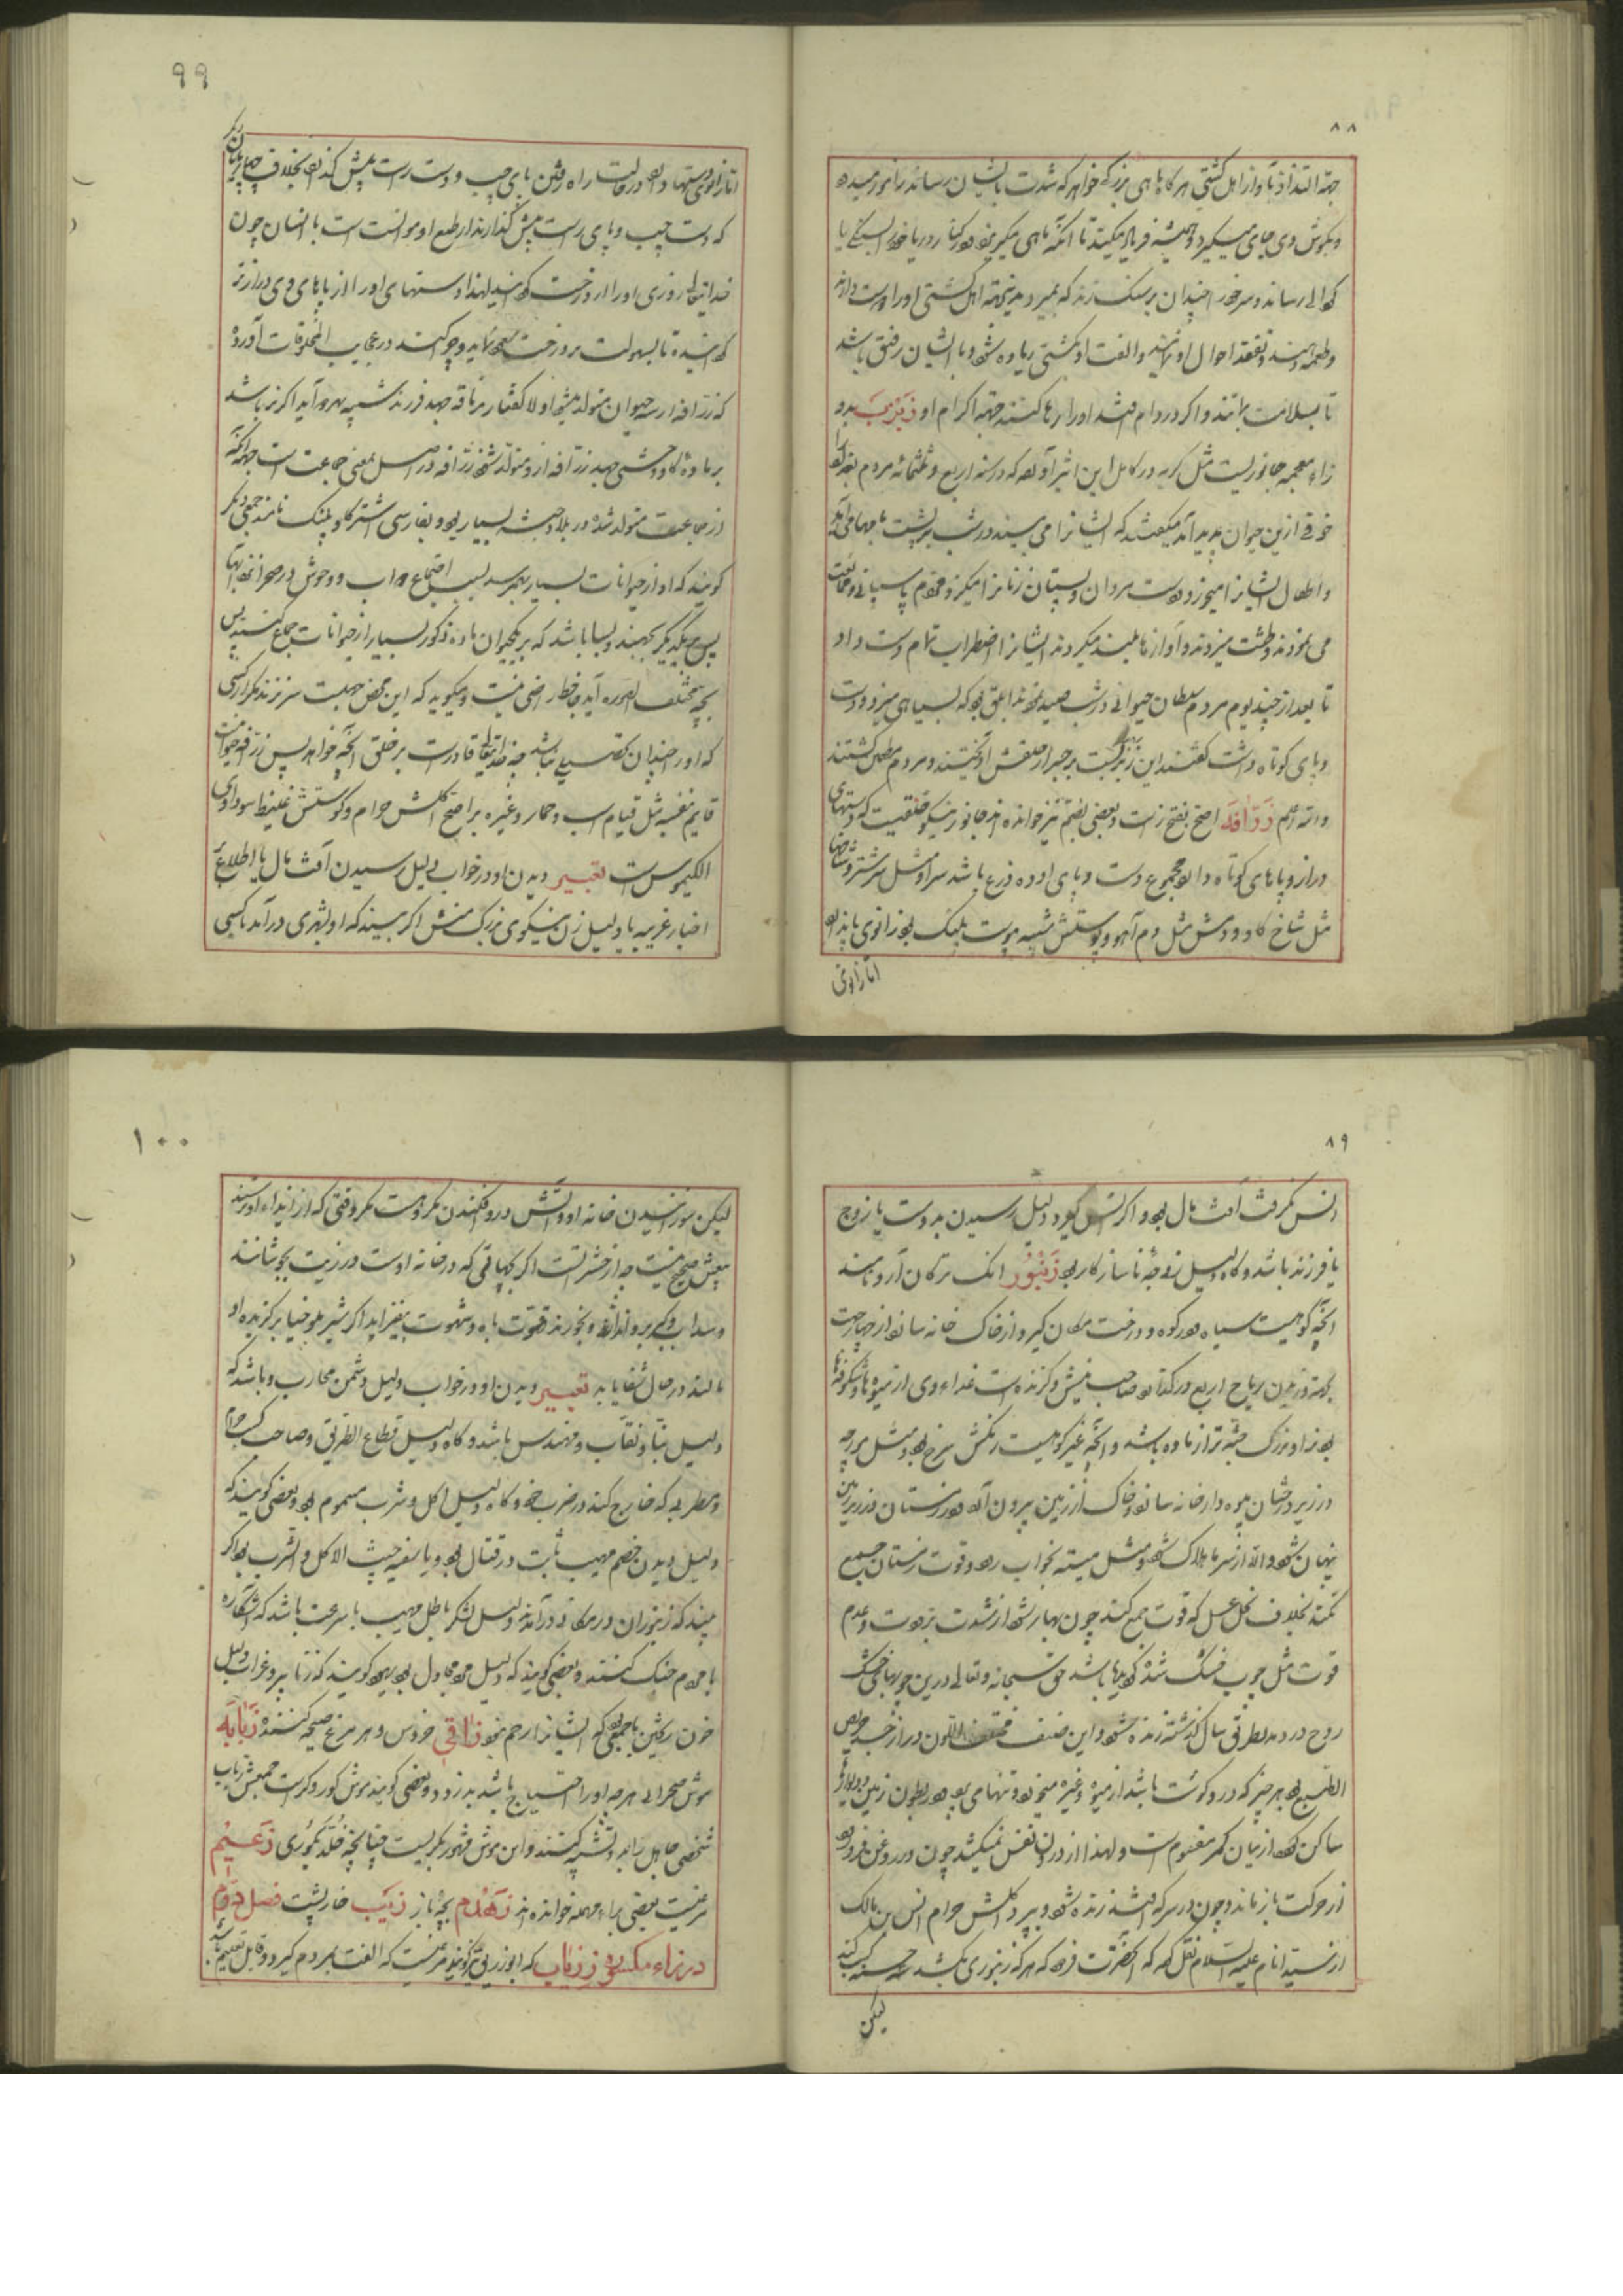 ٨٨
جهة التذاذ بآواز اهل کشتی هر کاه ماهی بزرک خواهد که شدت بایشان رساند رانمور میدهد
و بکوش وی جای میکیرد و همیشه فریاد میکند تا آنکه ماهی میکریزد و در کنار دریا خود را بسنکی یا
رساند و سر خود را چندان بر سنک زند که بمیرد بدینجهته اهل کشتی او را دوست دارند
و طعمه دهند و تفقد احوال او نمایند و الفت او بکشتی زیاده شود و با ایشان رفیق باشد
تا بسلامت بمانند و اکر در دام افتد او را رها کنند جهة اکرام او زَبْزَبْ بدو
زاء معجمه جانوریست مثل کربه در کامل ابن اثیر آورده که در سنه اربع و ثلثمائه مردم بغداد را
خوفی ازین حیوان پدید آمد میکفتند که ایشانرا می بینند در شب بر پشت بامها می آید
و اطفال ایشانرا میخورد و دست مردان و پستان زنانرا میکزد و مردم پاسبانی و محافظت
می نمودند و طشت میزدند و آوازها بلند میکردند ایشانرا اضطراب تمام دست داد
تا بعد از چند یوم مردم سلطان حیوانی در شب صید نمودند ابلق بود که بسیاهی میزد و دست
و پای کوتاه داشت کفتند این زبزب است بر جسر از حلقش آویختند و مردم مطمئن کشتند
والله اعلم زَرَافَه اصح بفتح زاست و بعضی بضم نیز خوانده اند جانور نیکو خلقتیست که دستهای
دراز و پاهای کوتاه دارد مجموع دست و پای او ده ذرع باشد سر او مثل سر شتر و شاخها
مثل شاخ کاو و دمش مثل دم آهو و پوستش شبیه پوست پلنک بود زانوی پا ندارد
اما زانوی
٩٩
اما زانوی دستها دارد در حالت راه رفتن پای چپ و دست راست پیش کذارد بخلاف چهارپایان دیکر
که دست چپ و پای راست پیش کذارند از طبع او موانست است با انسان چون
خدایتعالی روزی او را از درخت کردانید لهذا دستهای او را از پاهای وی درازتر
کردانیده تا بسهولت بر درخت صعود نماید و چرا کند در عجایب المخلوقات آورده
که زرافه از سه حیوان متولد میشود اولا کفتار بر ناقه جهد فرزند شبیه بهر دو آید اکر نر باشد
بر ماده کاو وحشی جهد زرافه از او متولد شود زرافه در اصل بمعنی جماعت است جهة آنکه
از جماعت متولد شده در بلاد حبشه بسیار بود و بفارسی اشتر کاو پلنک نامند جمعی دیکر
کویند که او از حیوانات بسیار بهم رسد بسبب اجتماع دواب و وحوش در صحرا نزد آبها
پس بیکدیکر بجهند و بسا باشد که بر یکحیوان ماده ذکور بسیار از حیوانات جماع کنند پس
بچه مختلف الصوره آید جاحظ راضی نیست و میکوید که این محض جهلست سر نزند مکر از کسی
که او را چندان تحصیلی نباشد چه خدایتعالی قادرست بر خلق آنچه خواهد پس زرافه حیوانیست
قایم بنفسه مثل قیام اسب و حمار و غیره بر اصح اکلش حرام و کوشتش غلیظ سوداوی
الکیموس است تعبیر دیدن او در خواب دلیل رسیدن آفت بمال یا اطلاع
اخبار غریبه یا دلیل زن نیکوی بزرک منش اکر بیند که او بشهری درآمد یا کسی
٨٩
انس نکرفت آفت بمال بود و اکر انس کیرد دلیل رسیدن بدوست یا زوج
یا فرزند باشد و کاه دلیل زوجه ناسازکار بود زَنْبُور انک ترکان آرو نامند
آنچه کوهیست سیاه بود در کوه و درخت مکان کیرد و از خاک خانه سازد از چهار جهت
بجهته وزیدن ریاح اربع در کذارد صاحب نیش و کزنده است غذاء وی از میوه ها و شکوفه ها
بود نر او بزرک جثه تر از ماده باشد و آنچه غیر کوهیست رنکش سرخ بود و مثل مورچه
در زیر درختان میوه دار خانه سازد و خاک از زمین بیرون آورد در زمستان در زیر زمین
پنهان شود و الا از سرما هلاک شود و مثل میته بخواب رود و قوت زمستان جمع
نکند بخلاف نحل عسل که قوت جمع کند چون بهار شود از شدت برودت و عدم
قوت مثل چوب خشک شده باشد حق سبحانه و تعالی در این چوبهای خشک
روح دردمد بطریق سال کذشته زنده شود و این صنف مختلف اللون دراز جسد حریص
الطبع بود بهر چیز که درو کوشت باشد از میوه و غیره میخورد و تنها می پرد در بطون زمین و دیوارها
ساکن بود از میان کمر مقسوم است و لهذا از درون نفس نمیکشد چون در روغن فرو رود
از حرکت باز ماند و چون در سرکه افتد زنده شود و بپرد اکلش حرام انس بن مالک
از سید انام علیه السلام نقل کرد که آنحضرت فرمود که هر که زنبوری بکشد سه حسنه کسب کند
لیکن
١٠٠
لیکن سوزانیدن خانه او و آتش درو افکندن مکروهست مکر وقتی که از ایذاء او ترسند
بیعش صحیح نیست چه از حشراتست اکر بچهائی که در خانه اوست در زیت بجوشانند
و سداب و کبر برو اندازند و بخورند قوت باه و شهوت بیفزاید اکر شیر ملوخیا بر کزیده او
مالند در حال شفا یابد تعبیر دیدن او در خواب دلیل دشمن محارب و باشد که
دلیل بنّا و نقاب و مهندس باشد و کاه دلیل قطاع الطریق و صاحب کسب حرام
و مطربی که خارج کند در ضرب خود و کاه دلیل اکل و شرب مسموم بود و بعضی کویند که
دلیل دیدن خصم مهیب ثابت در قتال بود و یا سفیه خبیث الاکل و الشرب بود اکر
بیند که زنبوران در مکانی درآمدند دلیل لشکر باطل مهیب با سرعت باشد که آشکاره
با مردم جنک کنند و بعضی کویند که دلیل مرد مجادل بود یهود کویند که زنابیر و غراب دلیل
خون ریختن باجمعی بود که ایشانرا رحم نبود زاقی خروس و هر مرغ صیحه کننده زبابه
موش صحرائی هر چه او را احتیاج باشد بدزدد و بعضی کویند موش کور و کرست جمعش زباب
شخصی جاهل را بدو تشبیه کنند و این موش مشهور بکریست چنانچه خُلد بکوری زَعیم
مرغیست بعضی براء مهمله خوانده اند زَهْدَم بچه باز زَیَب خارپشت فصل دوم
در زاء مکسوره زِریاب که ابوزریق نیز کویند مرغیست که الفت بمردم کیرد و قابل تعلیم باشد